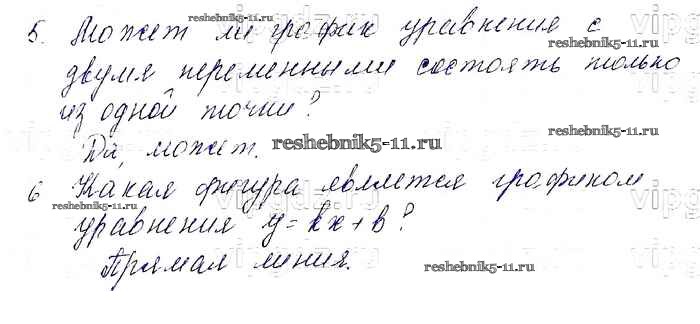 5. Может ли график уравнения с
двумя переменными состоять только
из одной точки?
Да, может.
6 Какая фигура является графиком
уравнения y=kx+b?
Прямая линия.
reshebnik5-11.ru
reshebnik5-11.ru
reshebnik5-11.ru
reshebnik5-11.ru
reshebnik5-11.ru
reshebnik5-11.ru